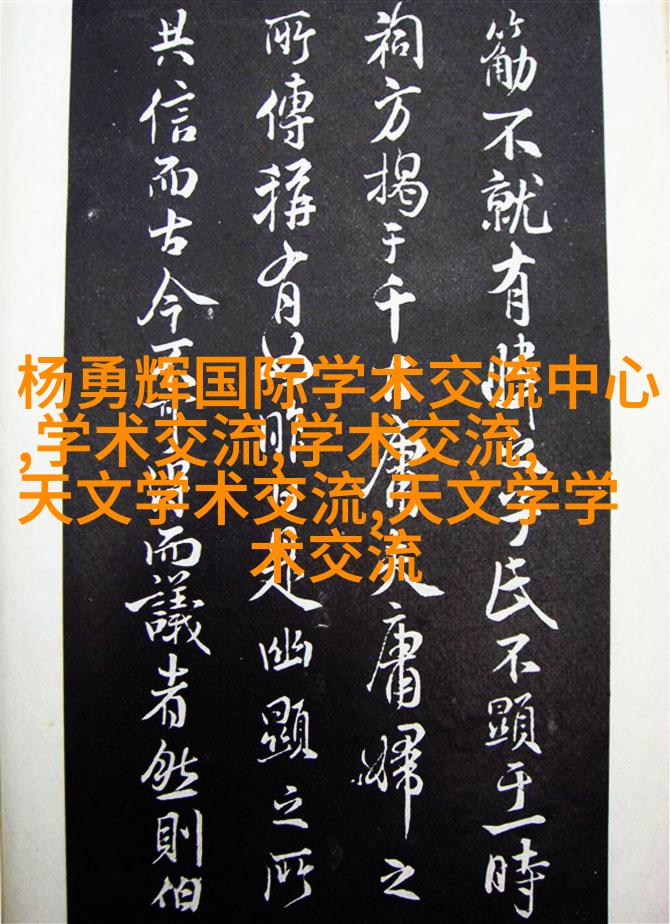 杨勇辉国际学术交流中心
,学术交流,学术交流,
天文学术交流,天文学学
术交流
不就有氏不顯于一時
祠方揭于千庸夫庸婦之
所傳稱有昨日是幽顯之所
共信而古今而議者然則伯